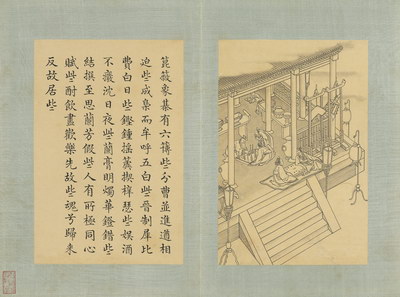 菎蔽象棊有六簙些分曹並進遒相
迫些成梟而牟呼五白些晉制犀比
費白日些鏗鍾搖簴揳梓瑟些娛酒
不廢沈日夜些蘭膏明燭華鐙錯些
結撰至思蘭芳假些人有所極同心
賦些酎飲盡歡樂先故些魂兮歸來
反故居些